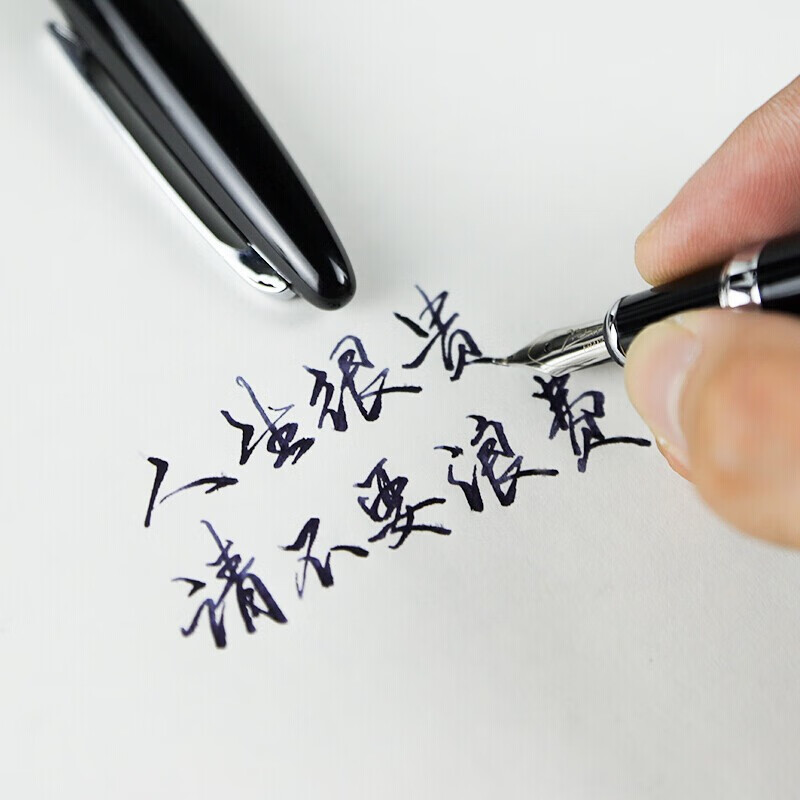 人生很贵
请不要浪费